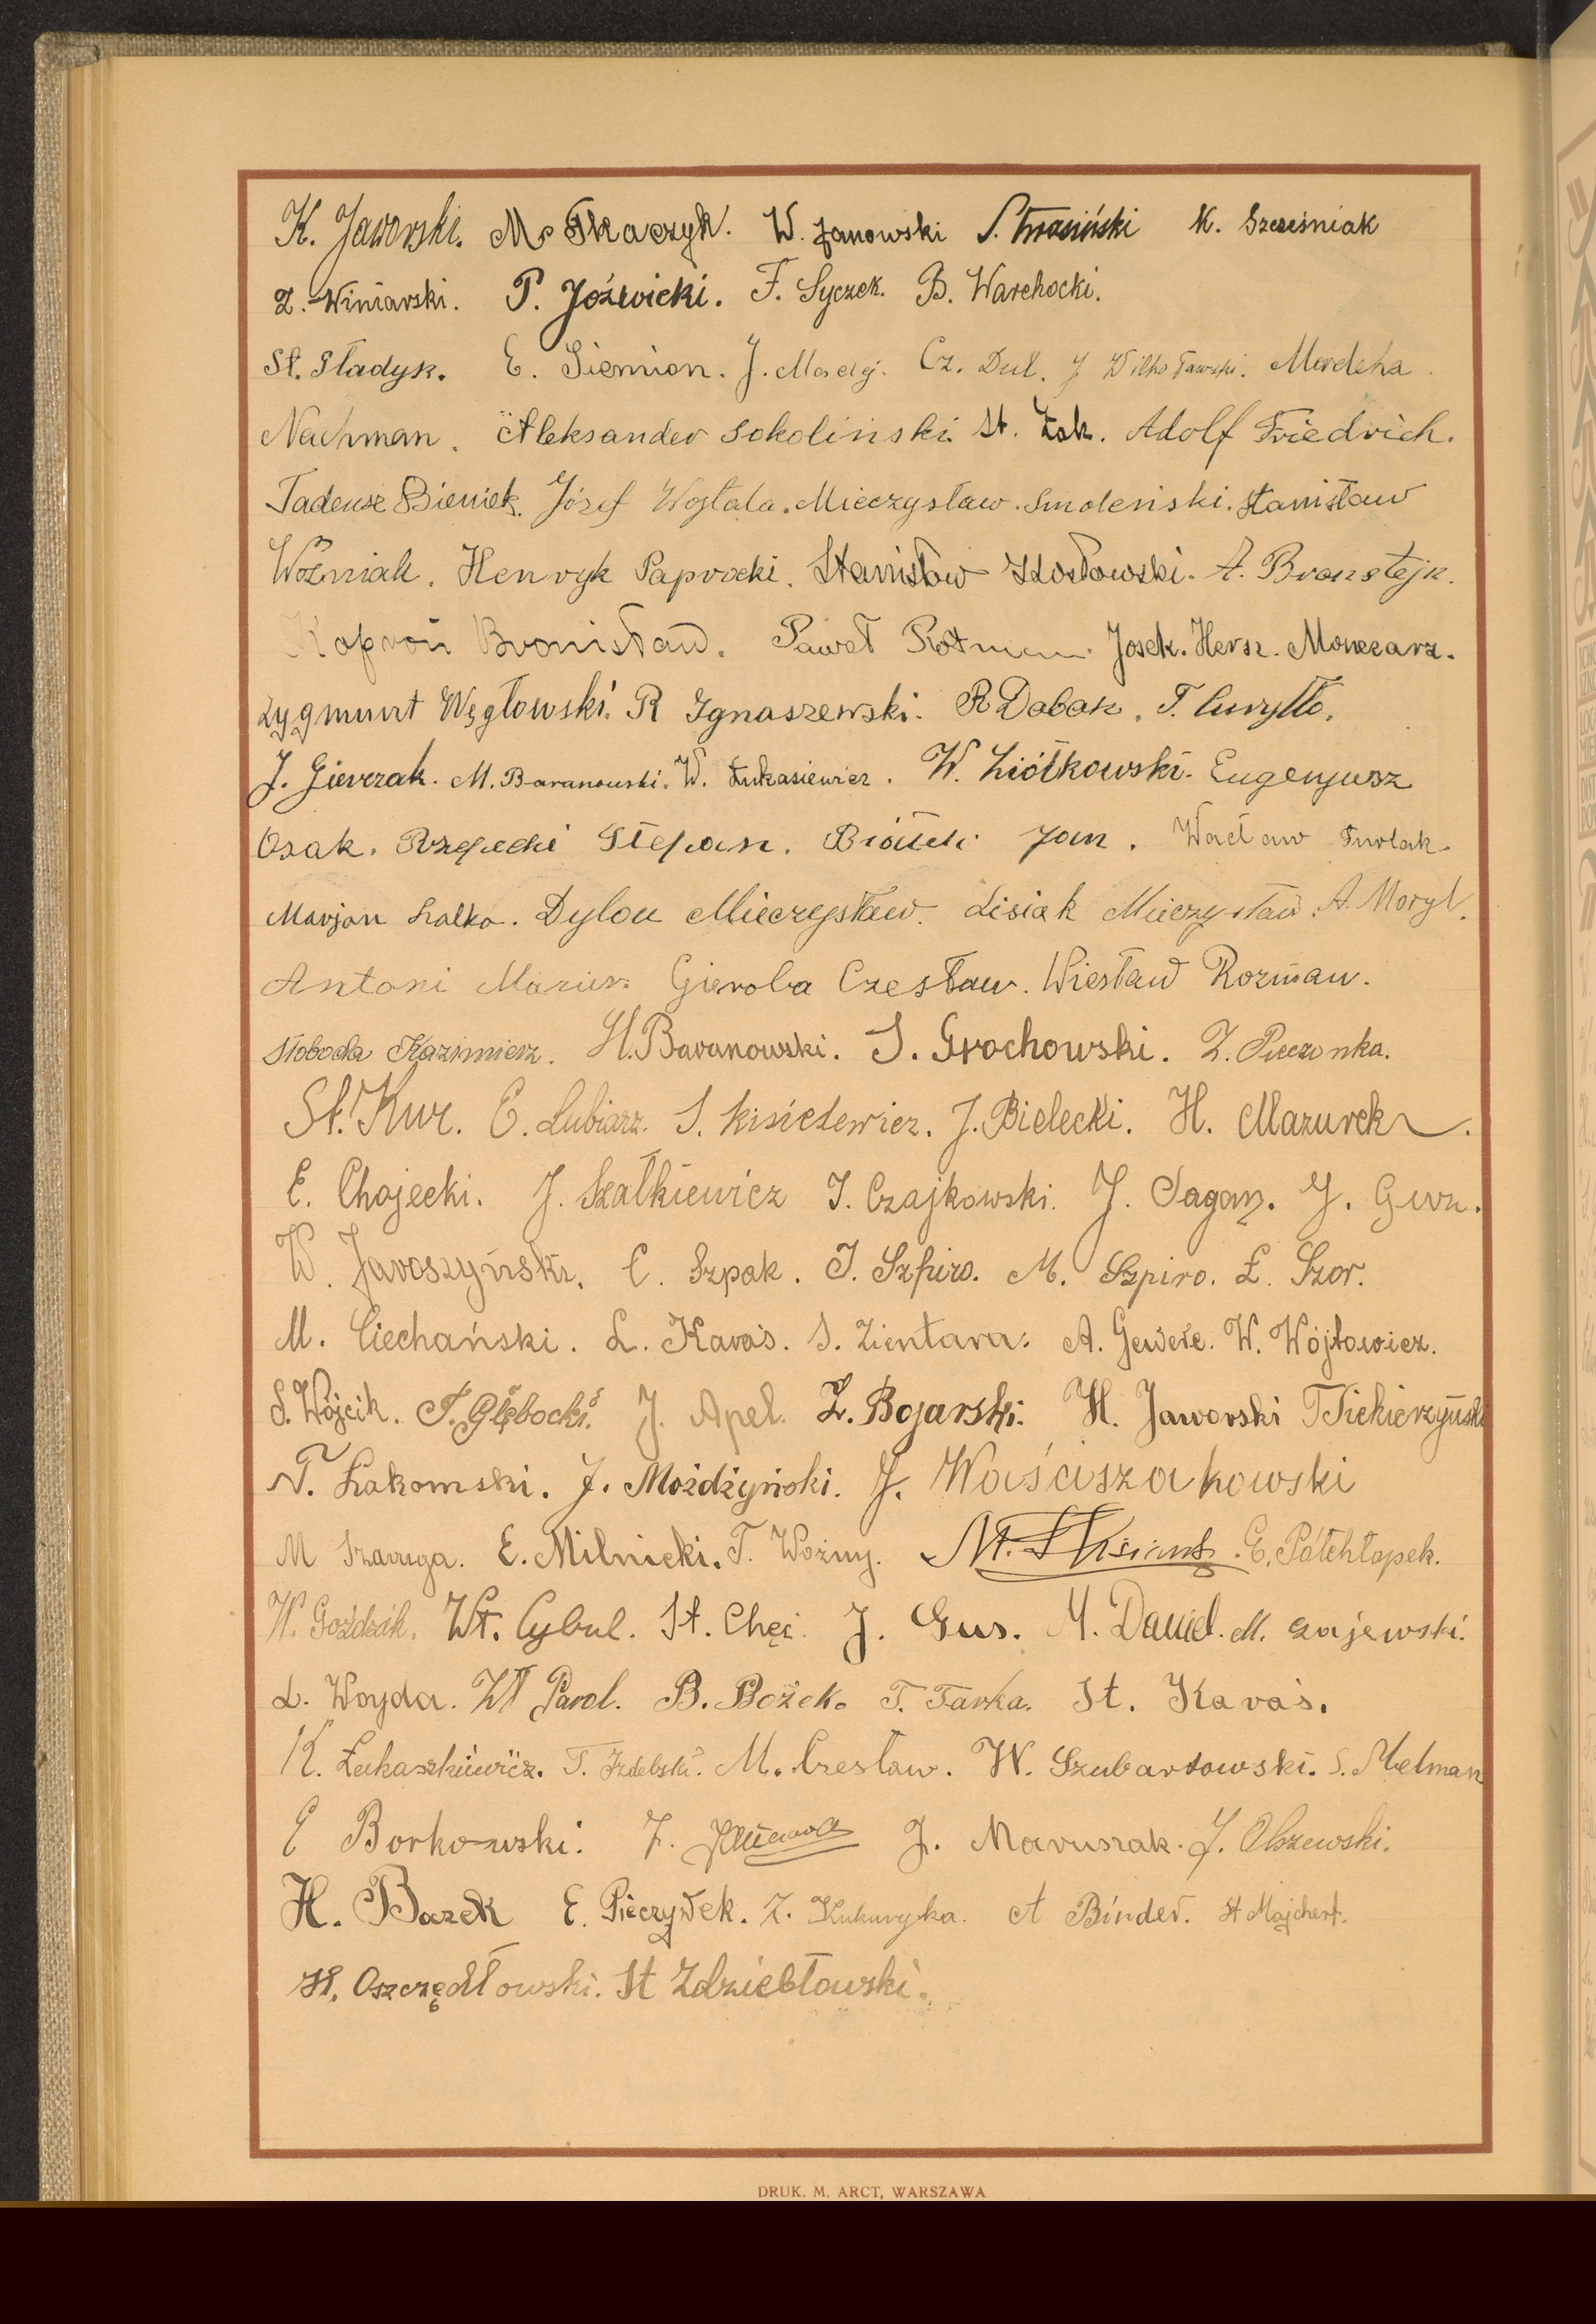 K. Jaworski. M. Tkaczyk. W. Janowski S. Krasiński K. Szcześniak
Z. Winiarski. P. Jóźwicki. F. Syczek. B. Warchocki.
St. Sładysz. E. Siemion. J. Maciąg. Cz. Dul. J Mordcha
Nachman. Aleksander Sokoliński. St. Żak. Adolf Friedrich.
Tadeusz Bieniek. Józef Wojtala. Mieczysław Smoleński. Stanisław
Woźniak. Henryk Paprocki. Stanisław Kozłowski. A. Bronstejn.
Kaproń Bronisław. Paweł Rotman. Josek. Hersz. Moneczarz.
Zygmunt Węgłowski. R Ignaszewski. R Dobosz. T. Curyłło.
J. Gierczak. M. Baranowski. W. Łukasiewicz. W. Ziółkowski. Eugenjusz
Osak. Rzepecki Stefan. Jan. Wacław
Marjan Szalko. Dylou Mieczysław. Lisiak Mieczysław. A. Moryl.
Antoni Mazur. Gieroba Czesław. Wiesław Rozman.
Słoboda Kazimierz. H. Baranowski. S. Grochowski. Z. Pieczonka.
St. Kur. E. Lubiarz. S. Kisielewicz. J. Bielecki. H. Mazurek.
E. Chojecki. J. Szałkiewicz T. Czajkowski. J. Sagan. J. Guz.
W. Jaroszyński. C. Szpak. J. Szpiro. M. Szpiro. L. Szor.
M. Ciechański. L. Karaś. S. Zientara. A. W. Wójtowicz.
S. Wójcik. T. Głębocki. J. Apel. Z. Bojarski. H. Jaworski T Siekierzyński
T. Łakomski. J. Możdżyński. J. Waściszakowski
M Szaruga. E. Milnicki. T. Woźny. M. E. Półchłopek.
W. Goździk. Wł. Cybul. St. Chęć. J. Gus. M. Daniel. M. Gajewski.
L. Woyda. Wł Parol. B. Bożek. T. Tarka. St. Karaś.
K. Łukaszkiewicz. T. Izdebski. M. Czesław. W. Szubartowski. S. Melman
E Borkowski. Z. J. Maruszak. J. Olszewski.
H. Bazek E. Pieczywek. Z. Kukuryka. A Binder. St Majchert.
H. Oszczędłowski. St Zdziebłowski.
DRUK. M. ARCT, WARSZAWA